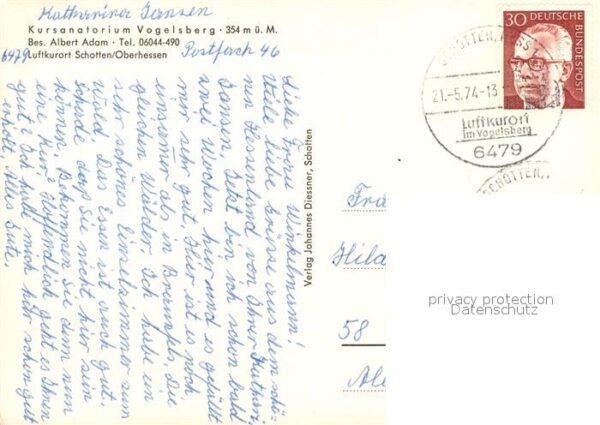 Katharina Jansen
Kursanatorium Vogelsberg · 354 m ü. M.
Bes. Albert Adam · Tel. 06044-490
Postfach 46
6479 Luftkurort Schotten/Oberhessen
Liebe Frau Winkelmann!
Viele liebe Grüsse aus dem schö-
nen Hessenland von Ihrer Kathar.
Jansen. Jetzt bin ich schon bald
zwei Wochen hier und es gefällt
mir sehr gut. Hier ist es noch
einsamer als in
gleichen Wälder. Ich habe ein
sehr schönes Einzelzimmer zum
Das Essen ist auch gut.
schade, dass Sie nicht hier sein
können. Bekommen Sie denn nun
eine Kur? Hoffendlich geht es Ihnen
gut? Ich habe mich hier schon gut
erholt, Alles Gute,
Verlag Johannes Diessner, Schotten
30 DEUTSCHE BUNDESPOST
SCHOTTEN, HESS 1
21.-5.74-13
Luftkurort
im Vogelsberg
6479
SCHOTTEN,
Hild
58
privacy protection
Datenschutz